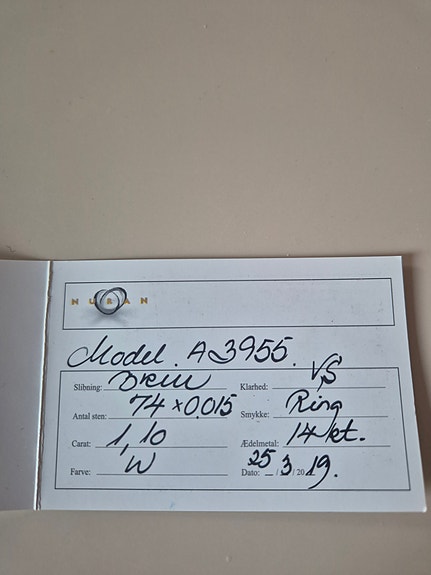 NURAN
Model. A 3955.
Slibning: Brill Klarhed: VS
Antal sten: 74 x 0.015 Smykke: Ring
Carat: 1,10 Ædelmetal: 14 kt.
Farve: W Dato: 25/3/2019.